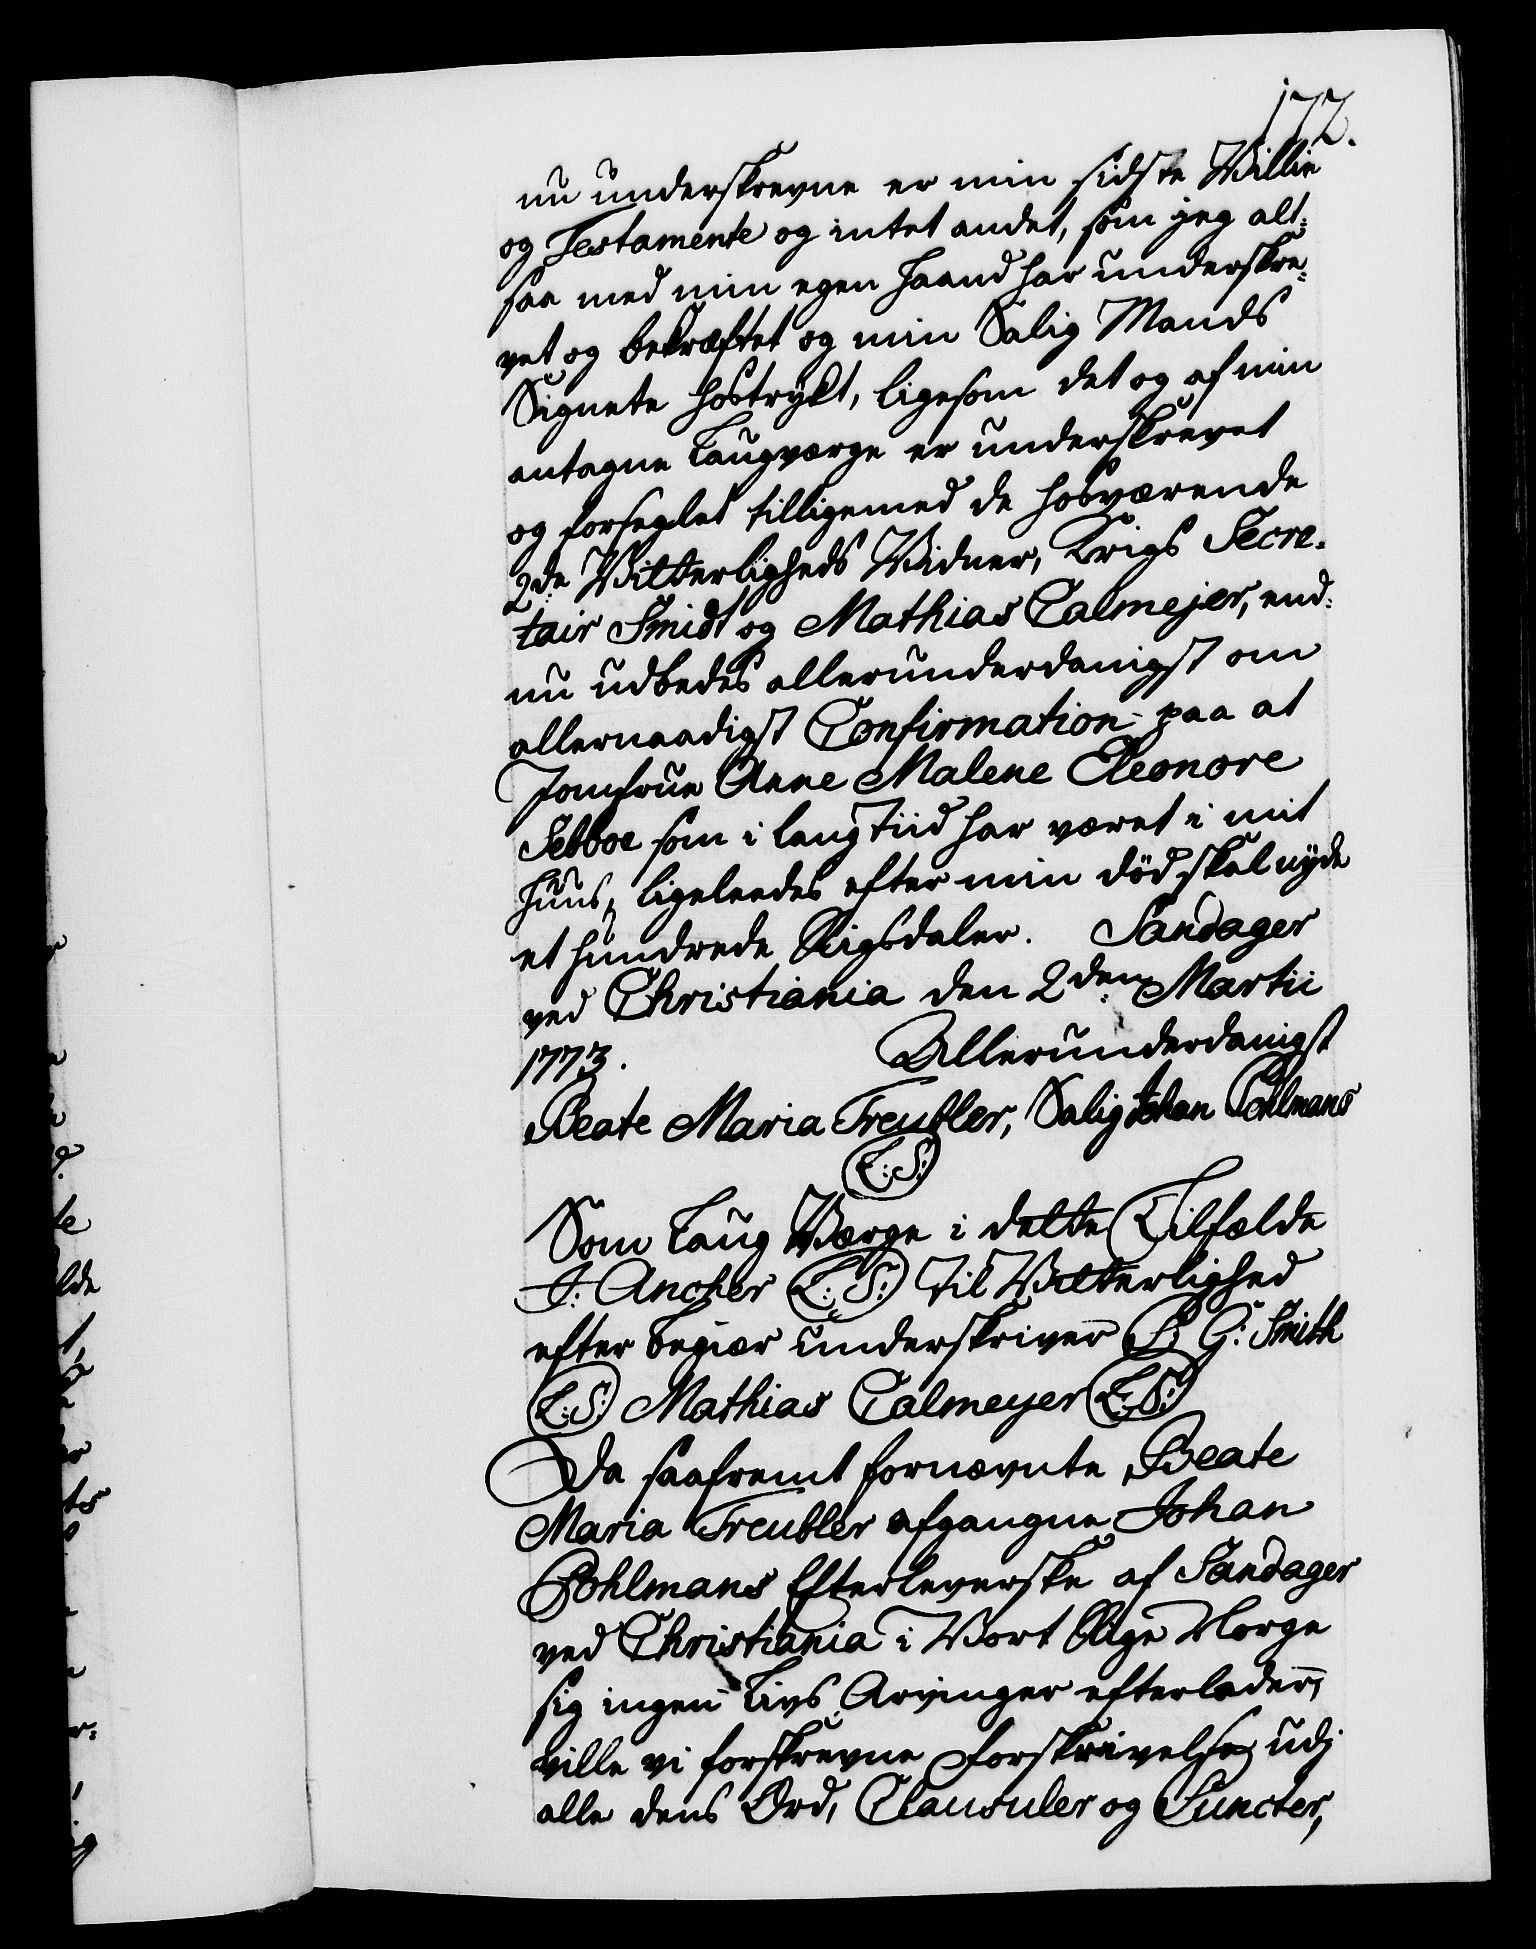 172.
nu underskrevne er min sidste Villie
og Testamente og intet andet, som jeg alt-
saa med min egen Haand har underskre-
vet og bekræftet og min Salig Mands
Signete hostrykt, ligesom det og af min
antagne Laugværge er underskrevet
og forseglet tilligemed de hosværende
2de Vitterligheds Vidner, Krigs Secre-
tair Smidt og Mathias Calmejer, end-
nu udbedes allerunderdanigst om
allernaadigst Confirmation paa at
Jomfrue Anne Malene Eleonore
Sebboe som i lang Tiid har været i mit
Huus, ligeleedes efter min död skal nyde
et hundrede Rigsdaler. Sandager
ved Christiania den 2den Martii
1773. Allerunderdanigst
Beate Maria Treubler, Salig Johan Pohlmans
(L:S:)
Som Laug Værge i dette Tilfælde
J: Ancher (L:S:) Til Vitterlighed
efter begiær underskriver P: G: Smith
(L:S:) Mathias Calmeyer (L:S:)
Da saafremt fornævnte Beate
Maria Treubler afgangne Johan
Pohlmans Efterleverske af Sandager
ved Christiania i Vort Rige Norge
sig ingen Livs Arvinger efterlader,
ville vi forskrevne Forskrivelse, udj
alle dens Ord, Clausuler og Puncter,